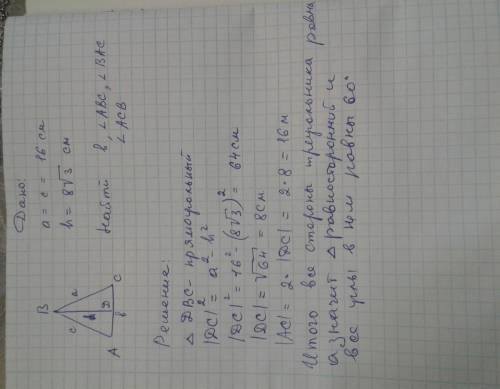 Дано:
a = c = 16 см
h = 8√3 см
Найти b, ∠ABC, ∠BAC
∠ACB
B
c
a
h
A
D
C
b
Решение:
△ DBC - прямоугольный
|DC|² = a² - h²
|DC|² = 16² - (8√3)² = 64 см
|DC| = √64 = 8 см
|AC| = 2·|DC| = 2·8 = 16 м
Итого все стороны треугольника равны
а значит △ равносторонний и
все углы в нем равны 60°